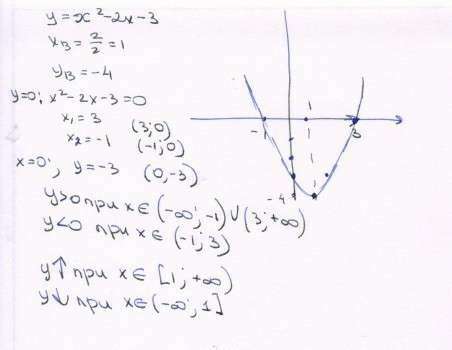 y=x²-2x-3
xв=2/2=1
yв=-4
y=0; x²-2x-3=0
x₁=3 (3;0)
x₂=-1 (-1;0)
x=0; y=-3 (0,-3)
y>0 при x∈(-∞;-1)∪(3;+∞)
y<0 при x∈(-1;3)
y↑ при x∈[1;+∞)
y↓ при x∈(-∞;1]
1
-1 3
-4